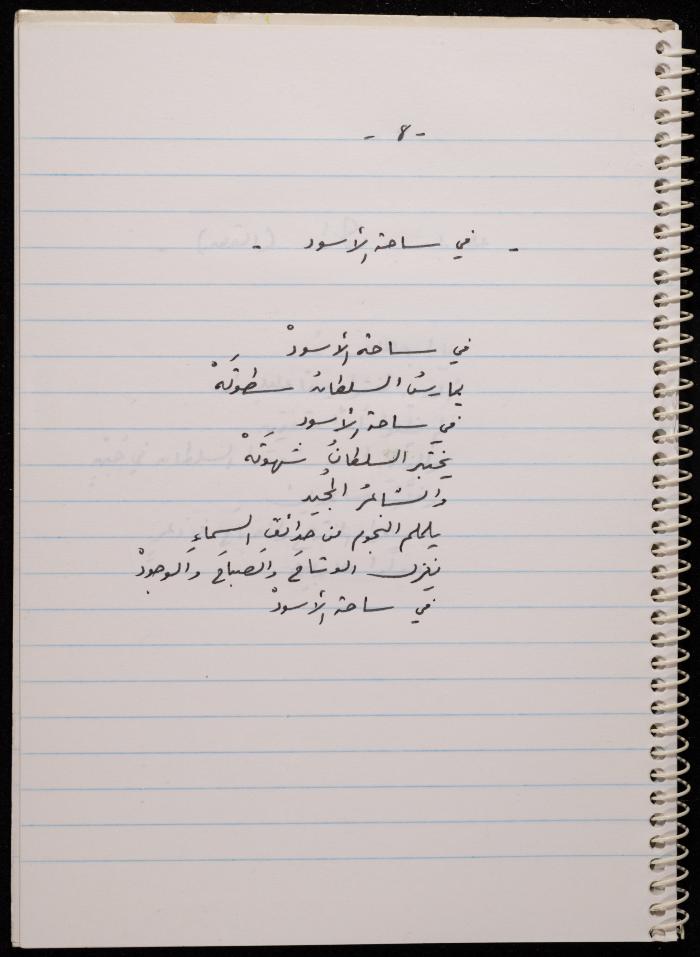 - ٨ -
- في ساحة الأسود -
في ساحة الأسودْ
يمارسُ السلطانُ سطوتَهْ
في ساحة الأسود
يختبر السلطانُ شهوتَهْ
والشاعرُ المُجيد
يلملم النجوم من حدائقِ السماءِ
يغزل الوشاحَ والصباحَ والوجودْ
في ساحة الأسودْ